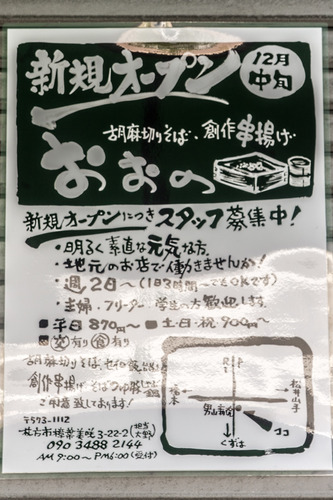 新規オープン
12月
中旬
胡麻切りそば、創作串揚げ
おおの
新規オープンにつきスタッフ募集中！
・明るく素直な元気な方。
・地元のお店で働きませんか！
・週2日〜（1日3時間〜でもOKです）
・主婦・フリーター・学生の方歓迎します。
■平日870円〜 ■土・日・祝900円〜
交有り 食有り
胡麻切りそば
創作串揚げ
ご用意致しております！
〒573-1112
枚方市樟葉美咲3-22-2（担当 大野）
090 3488 2144
AM 9:00〜PM6:00（受付）
橋本
松井山手
男山
ココ
くずは